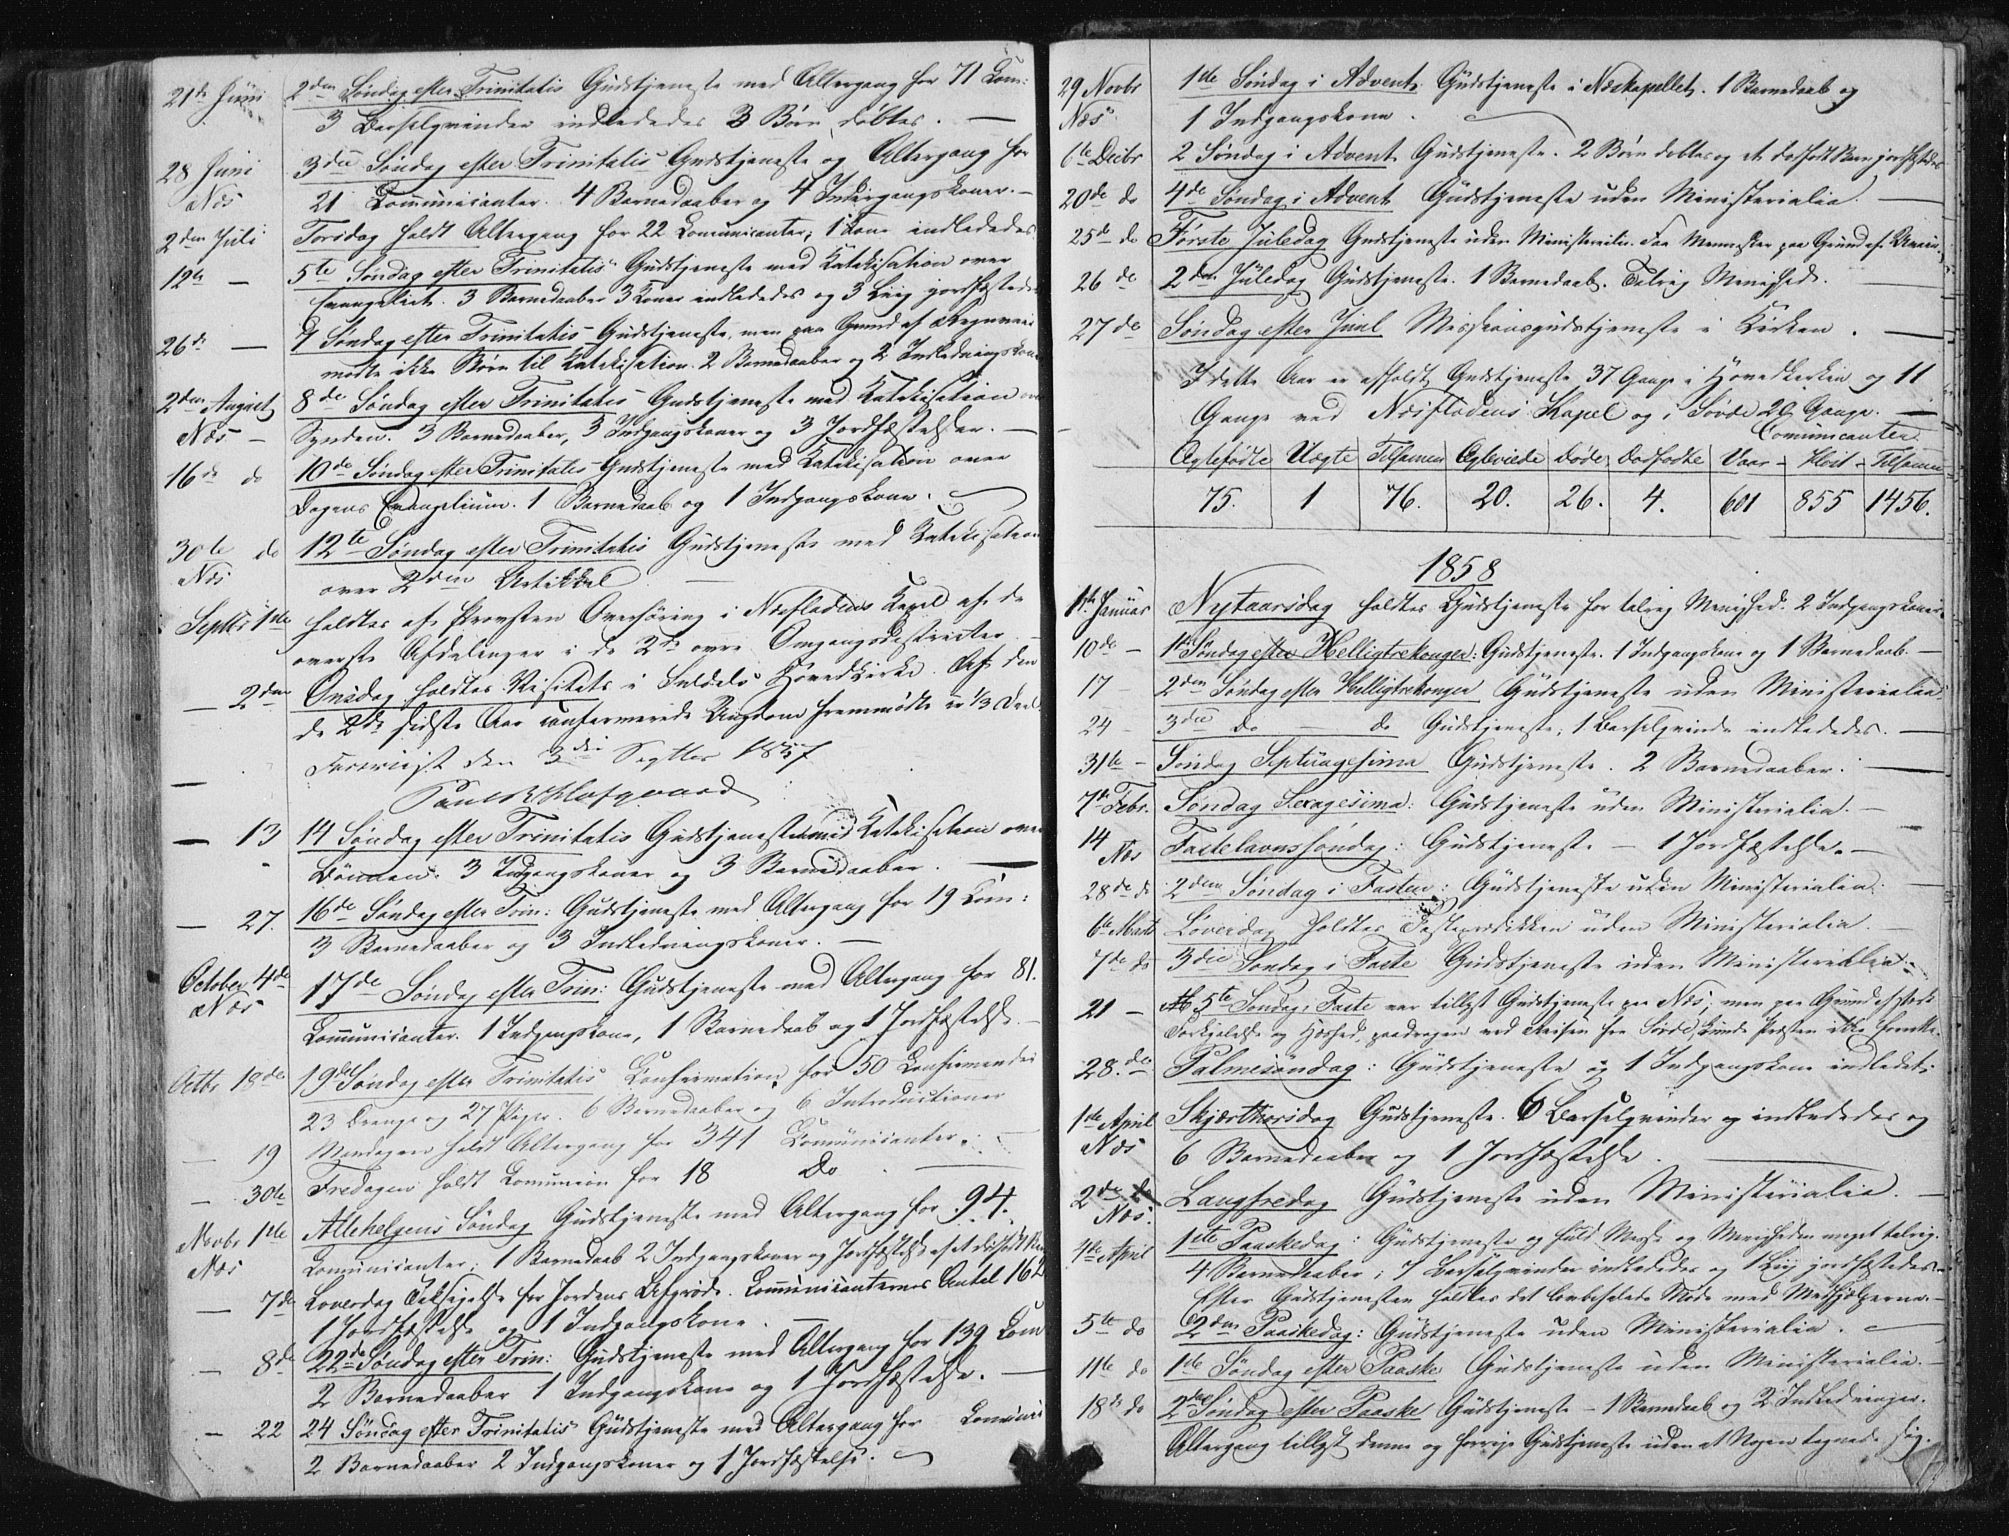 21de Juni 2den Søndag efter Trinitatis Gudstjeneste med Altergang for 71 Com:
3 Barselqvinder indlededes 3 Børn døbtes. —
28 Juni 3die Søndag efter Trinitatis Gudstjeneste og Altergang for
Næs 21 Communicanter. 4 Barnedaaber og 4 Indgangskoner. —
2den Juli Torsdag holdt Altergang for 22 Comunicanter; 1 Kone indlededes
12te — 5te Søndag efter Trinitatis Gudstjeneste med Katekisation over
Evangeliet. 3 Barnedaaber 3 Koner indlededes og 3 Liig jordfæstedes
26de — 7 Søndag efter Trinitatis Gudstjeneste, men paa Grund af Regnveir
mødte ikke Børn til Katekisation. 2 Barnedaaber og 2 Indledningskoner
2den August 8de Søndag efter Trinitatis Gudstjeneste med Katekisation over
Næs — Synden. 3 Barnedaaber, 3 Indgangskoner og 3 Jordfæstelser. —
16de do 10de Søndag efter Trinitatis Gudstjeneste med Katekisation over
Dagens Evangelium. 1 Barnedaab og 1 Indgangskone.
30te do 12te Søndag efter Trinitatis Gudstjeneste med Katekisation
Næs over 2den Artikkel
Septbr 1ste holdtes af Provsten Overhøring i Næsfladens Kapel af de
øverste Afdelinger i de 2de øvre Omgangsdistricter. —
— 2den Onsdag holdtes Visitats i Suldals Hovedkirke. Af den
de 2de sidste Aar confirmerede Ungdom fremmødte ca 1/3 Deel.
den 3die Septbr 1857
— 13 14 Søndag efter Trinitatis Gudstjeneste med Katekisation over
Bønnen. 3 Indgangskoner og 3 Barnedaaber. —
— 27. 16de Søndag efter Trin: Gudstjeneste med Altergang for 19 Com:
3 Barnedaaber og 3 Indledningskoner. —
October 4de 17de Søndag efter Trin: Gudstjeneste med Altergang for 81.
Næs Communicanter. 1 Indgangskone, 1 Barnedaab og 1 Jordfæstelse. —
Octbr 18de 19de Søndag efter Trinitatis Confirmation for 50 Confirmander
23 Drenge og 27 Piger. 6 Barnedaaber og 6 Introductioner
— 19 Mandagen holdt Altergang for 341 Comunicanter. —
— 30te Fredagen holdt Comunion for 18 Do —
Novbr 1ste Allehelgens Søndag Gudstjeneste med Altergang for 94.
Næs Comunicanter; 1 Barnedaab 2 Indgangskoner og Jordfæstelse af et dødfødt Barn
— 7de Løverdag Taksigelse for Jordens Afgrøde. Communicanternes Antal 162
1 Jordfæstelse og 1 Indgangskone. —
— 8de 22de Søndag efter Trin: Gudstjeneste med Altergang for 139 Com
2 Barnedaaber 1 Indgangskone og 1 Jordfæstelse. —
— 22 24 Søndag efter Trinitatis Gudstjeneste med Altergang for Comuni
2 Barnedaaber 2 Indgangskoner og 1 Jordfæstelse.
29 Novbr 1ste Søndag i Advent Gudstjeneste i Næskapellet. 1 Barnedaab og
Næs 1 Indgangskone.
6te Decbr 2 Søndag i Advent Gudstjeneste. 2 Børn døbtes og et dødfødt Barn jordfæstedes
20de do 4de Søndag i Advent Gudstjeneste uden Ministerialia. —
25de do Første Juledag Gudstjeneste uden Ministerialia. Faa Mennesker paa Grund af
26 de 2den Juledag Gudstjeneste. 1 Barnedaab. Talrig Menighed. —
27 de Søndag efter Juul Missionsgudstjeneste i Kirken. —
I dette Aar er afholdt Gudstjeneste 37 Gange i Hovedkirken og 11
Gange ved Næsfladens Kapel og i Søvde 20 Gange. —
Comunicanter
Ægtefødte Uægte Tilsamen Egteviede Døde Dødfødte Vaar - Høst - Tilsamen
75. 1 76. 20. 26. 4. 601 855 1456.
1858
1ste Januar Nytaarsdag holdtes Gudstjeneste for talrig Menighed. 2 Indgangskoner.
10de — 1ste Søndag efter Helligtrekonger: Gudstjeneste. 1 Indgangskone og 1 Barnedaab. —
17 — 2den Søndag efter Helligtrekonger Gudstjeneste uden Ministerialia.
24 — 3die do — do Gudstjeneste; 1 Barselqvinde indlededes. —
31te — Søndag Septuagesima Gudstjeneste. 2 Barnedaaber. —
7de Febr. Søndag Sexagesima: Gudstjeneste uden Ministerialia. —
14 Næs Fastelavnssøndag: Gudstjeneste — 1 Jordfæstelse. —
28de do 2den Søndag i Fasten: Gudstjeneste uden Ministerialia. —
6te Marts Løverdag holdtes Fasteprædikken uden Ministerialia. —
7de do 3die Søndag i Faste Gudstjeneste uden Ministerialia. —
21 — 5te Søndag i Faste var tillyst Gudstjeneste paa Næs, men paa Grund af stærk
Forkjølelse og Hæshed, paadragen ved Reisen fra Søvde, kunde Præsten ikke forrette.
28.de Palmesøndag: Gudstjeneste og 1 Indgangskone indledet.
1ste April Skjærthorsdag Gudstjeneste. 6 Barselqvinder og indlededes og
Næs 6 Barnedaaber og 1 Jordfæstelse. —
2de do Langfredag Gudstjeneste uden Ministerialia. —
Næs.
4de April 1ste Paaskedag: Gudstjeneste og fuld Messe og Menigheden meget talrig.
4 Barnedaaber; 7 Barselqvinder indlededes og 1 Liig jordfæstedes. —
Efter Gudstjenesten holdtes det anbefalede Møde med Medhjælperne. —
5te do 2den Paaskedag: Gudstjeneste uden Ministerialia. —
11te do 1ste Søndag efter Paaske Gudstjeneste uden Ministerialia. —
18de do 2den Søndag efter Paaske Gudstjeneste — 1 Barnedaab og 2 Indledninger.
Altergang tillyst denne og forrige Gudstjeneste uden at Nogen tegnede sig.